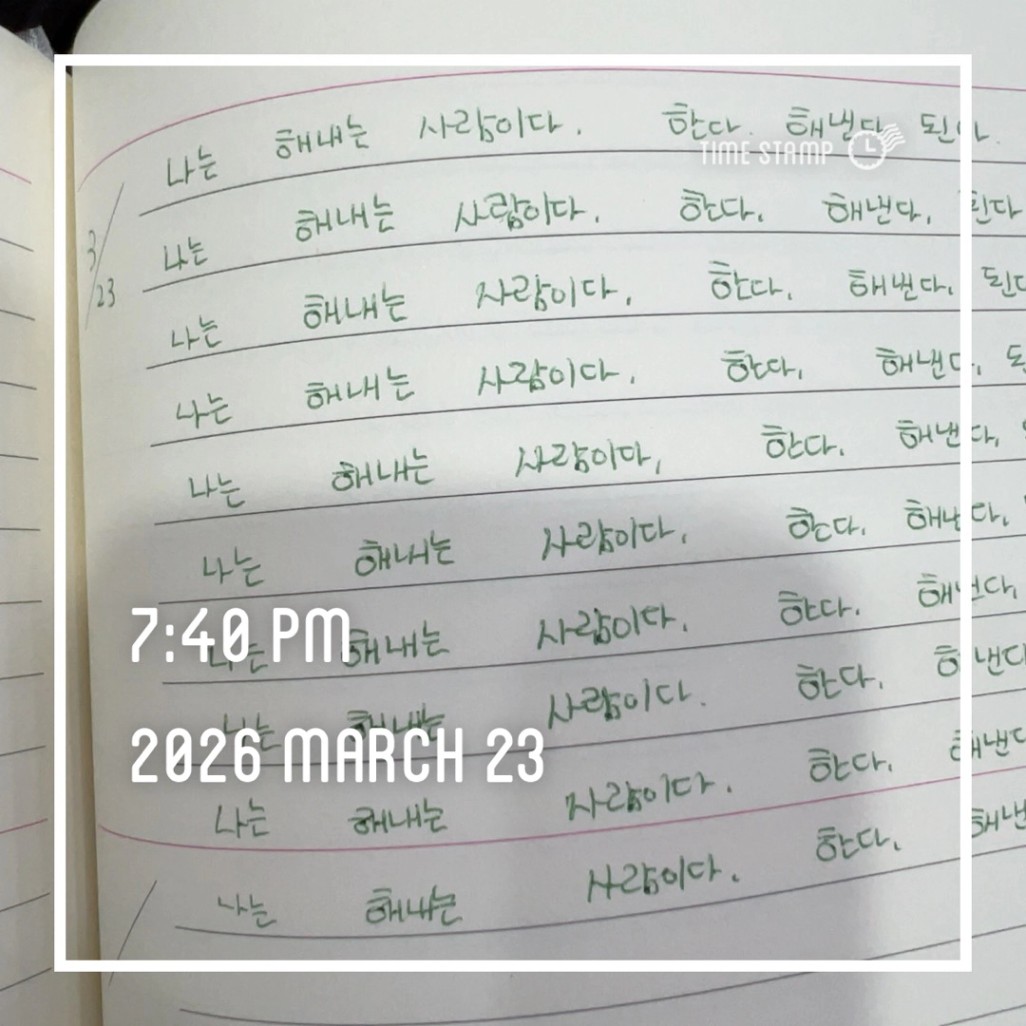 나는 해내는 사람이다. 한다. 해낸다. 된다.
TIME STAMP
나는 해내는 사람이다. 한다. 해낸다. 된다
3/23
나는 해내는 사람이다. 한다. 해낸다. 된다
나는 해내는 사람이다. 한다. 해낸다.
나는 해내는 사람이다. 한다. 해낸다.
나는 해내는 사람이다. 한다. 해낸다.
나는 해내는 사람이다. 한다. 해낸다.
7:40 PM
나는 해내는 사람이다. 한다. 해낸다
2026 MARCH 23
나는 해내는 사람이다. 한다. 해낸다
나는 해내는 사람이다. 한다. 해낸